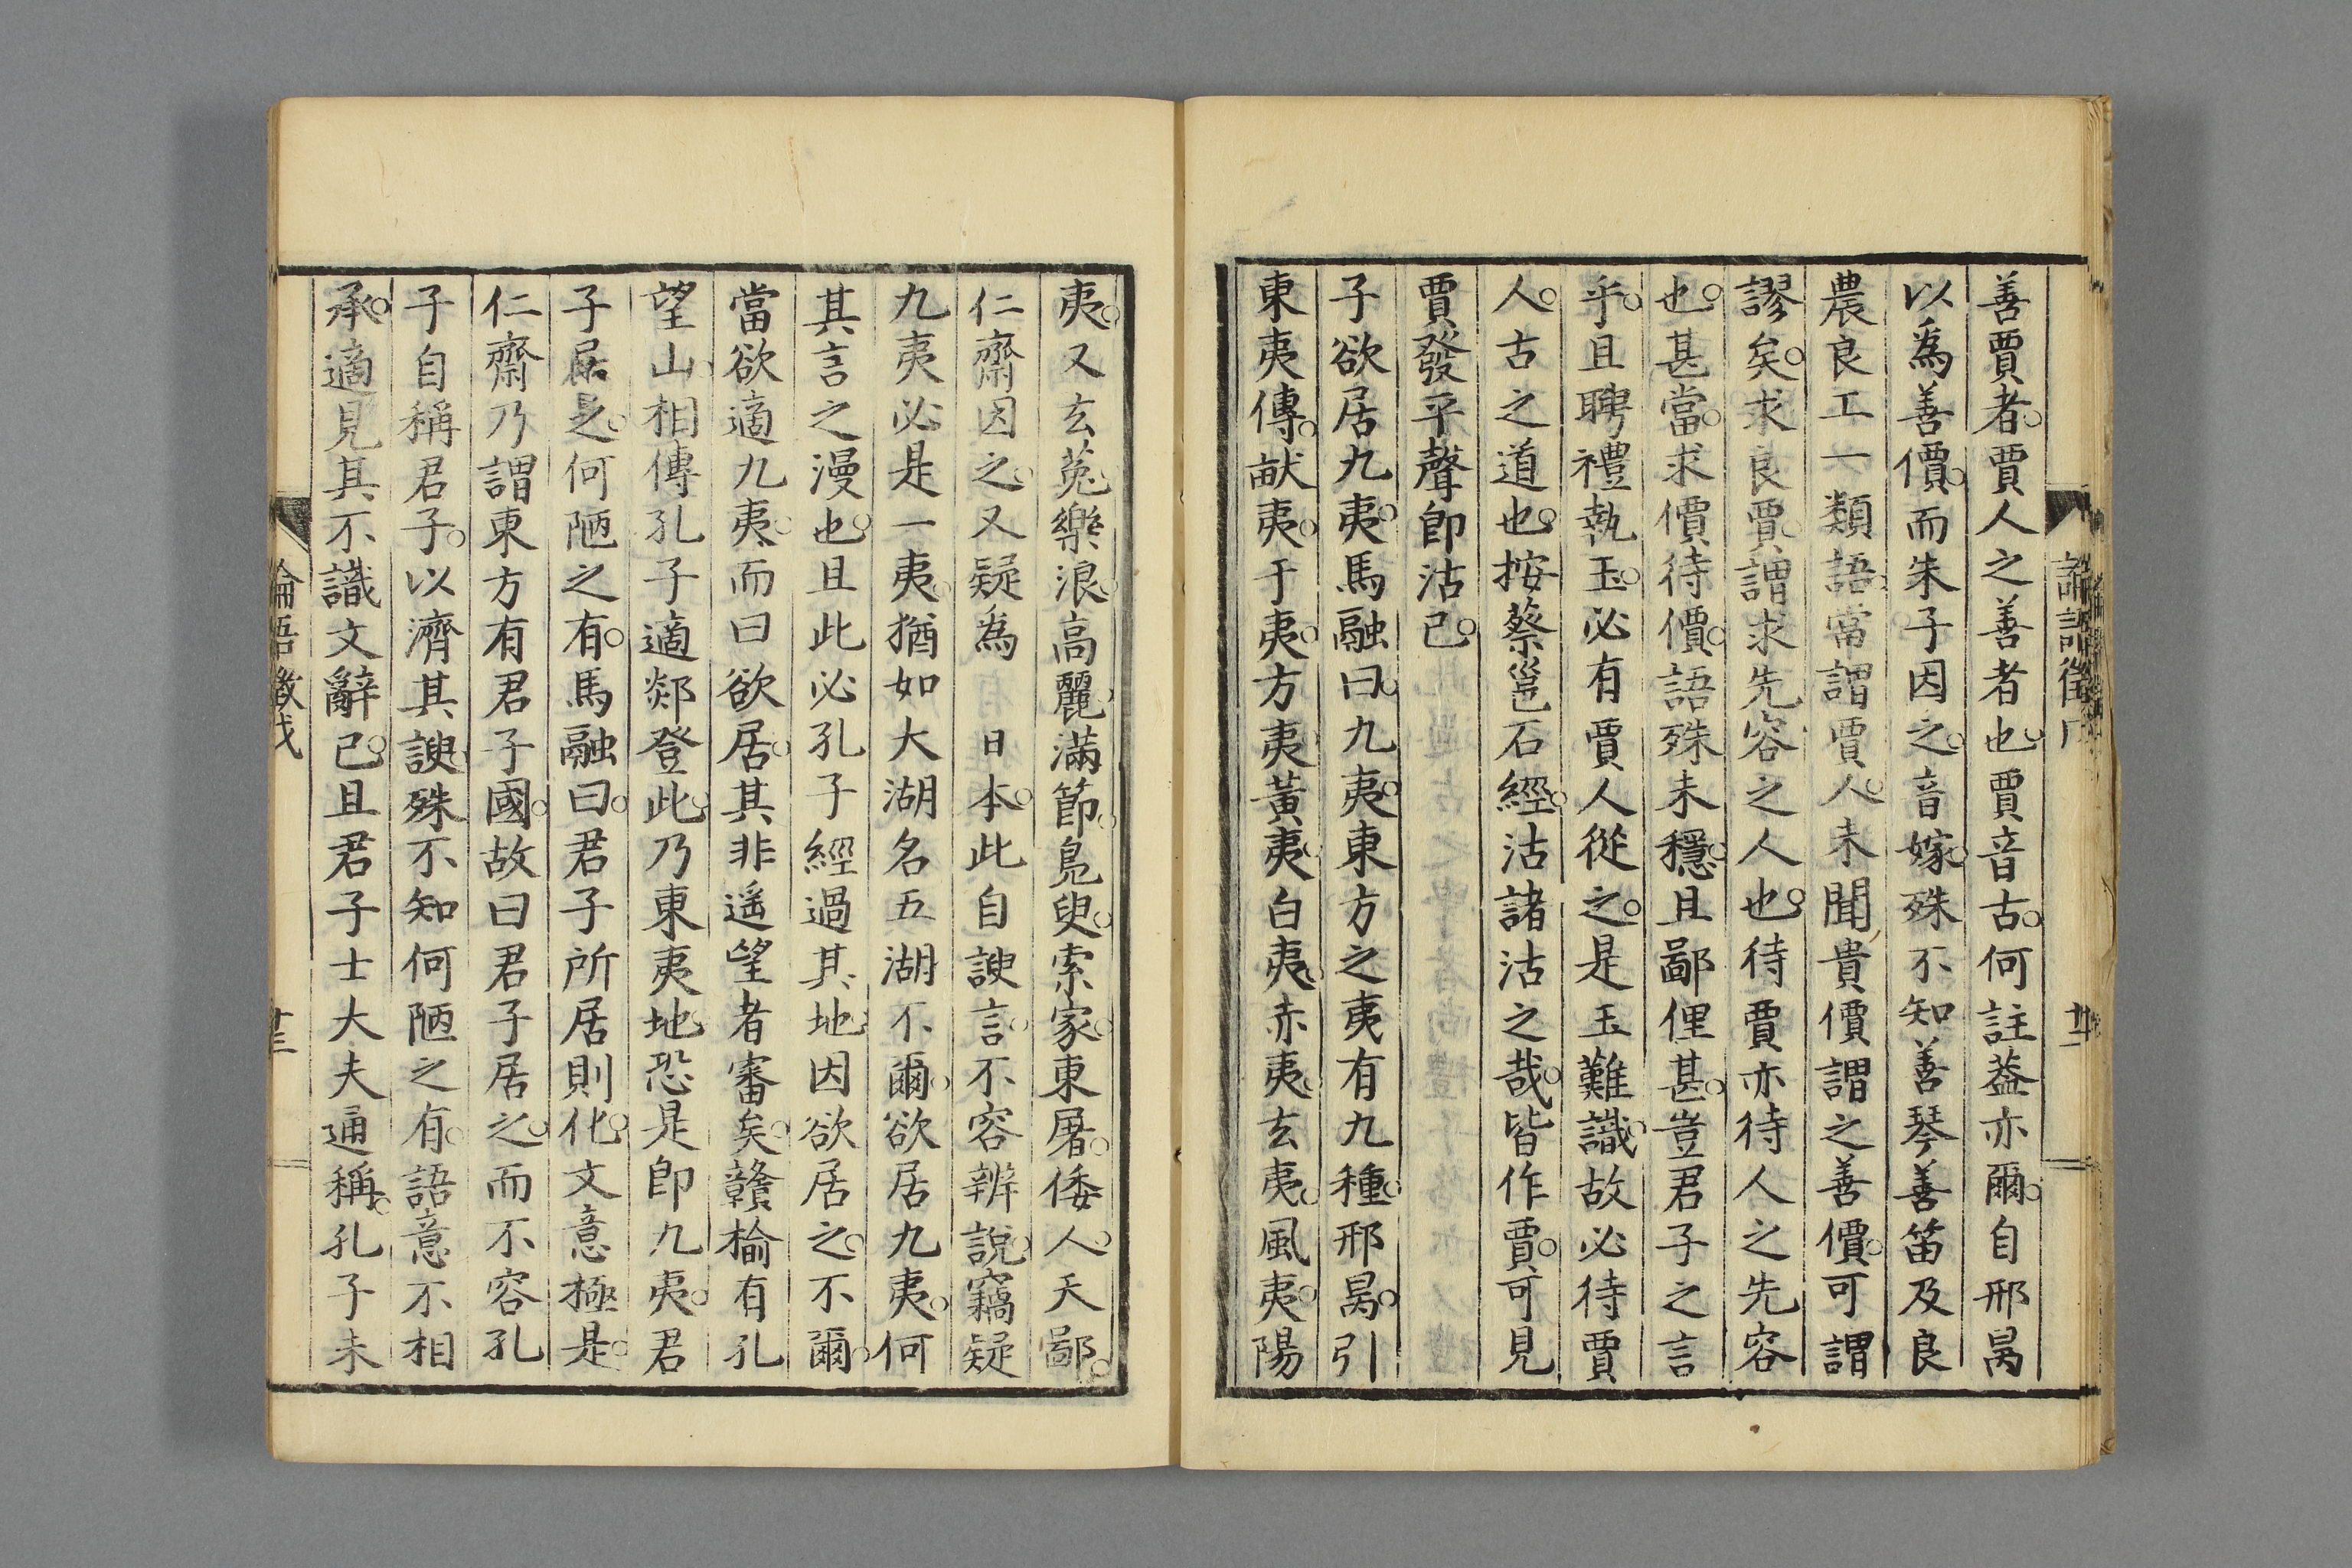 善賈者。賈人之善者也。賈音古。何註葢亦爾。自邢昺
以爲善價。而朱子因之。音嫁。殊不知善琴善笛及良
農良工一類語。當謂賈人。未聞貴價謂之善價。可謂
謬矣。求良賈。謂求先容之人也。待賈亦待人之先容
也。甚當。求價待價。語殊未穩。且鄙俚甚。豈君子之言
乎。且聘禮執玉。必有賈人從之。是玉難識。故必待賈
人。古之道也。按蔡邕石經。沽諸沽之哉。皆作賈。可見
賈發平聲。卽沽已。
子欲居九夷。馬融曰。九夷。東方之夷有九種。邢昺。引
東夷傳。畎夷。于夷。方夷。黃夷。白夷。赤夷。玄夷。風夷。陽
夷。又玄菟。樂浪。高麗。滿節。鳧臾。索家。東屠。倭人。天鄙。
仁齋因之。又疑爲日本。此自諛言。不容辨說。竊疑
九夷必是一夷。猶如大湖名五湖。不爾。欲居九夷。何
其言之漫也。且此必孔子經過其地。因欲居之。不爾。
當欲適九夷。而曰欲居。其非遥望者審矣。贛榆有孔
望山。相傳孔子適郯登此。乃東夷地。恐是卽九夷。君
子居是。何陋之有。馬融曰。君子所居則化。文意極是。
仁齋乃謂東方有君子國。故曰君子居之。而不容孔
子自稱君子。以濟其諛。殊不知何陋之有。語意不相
承。適見其不識文辭已。且君子士大夫通稱。孔子未